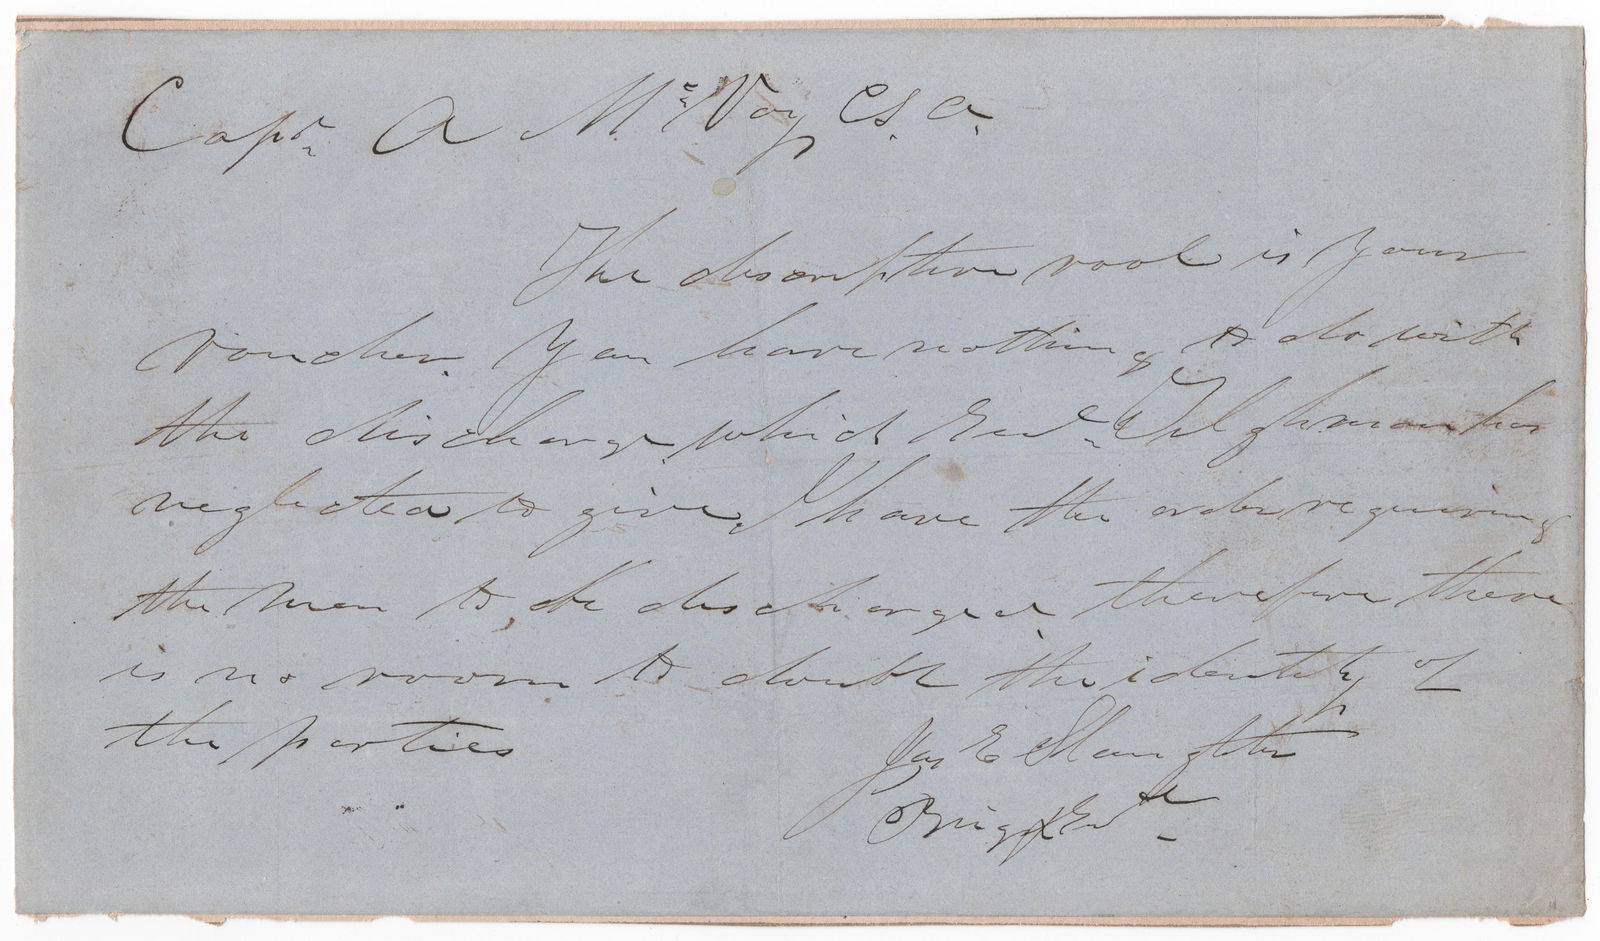 Capt. A McVoy C.S.A.
The descriptive rool is your
voucher. You have nothing to do with
the discharge which Genl. Tilghman has
neglected to give, I have the order requiring
the men to be discharged, therefore there
is no room to doubt the identity of
the parties
Jas E Slaughter
Brig Genl